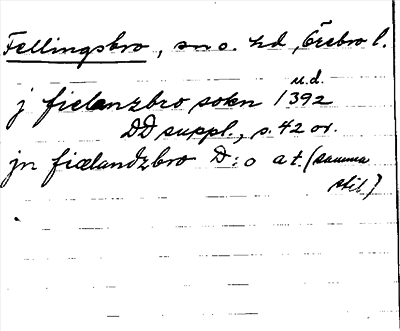 Fellingsbro, sn o. hd, Örebro l.
j fielanzbro sokn 1392 u.d.
DD suppl., s. 42 or.
jn fiælandzbro D:o at. (samma
stil)